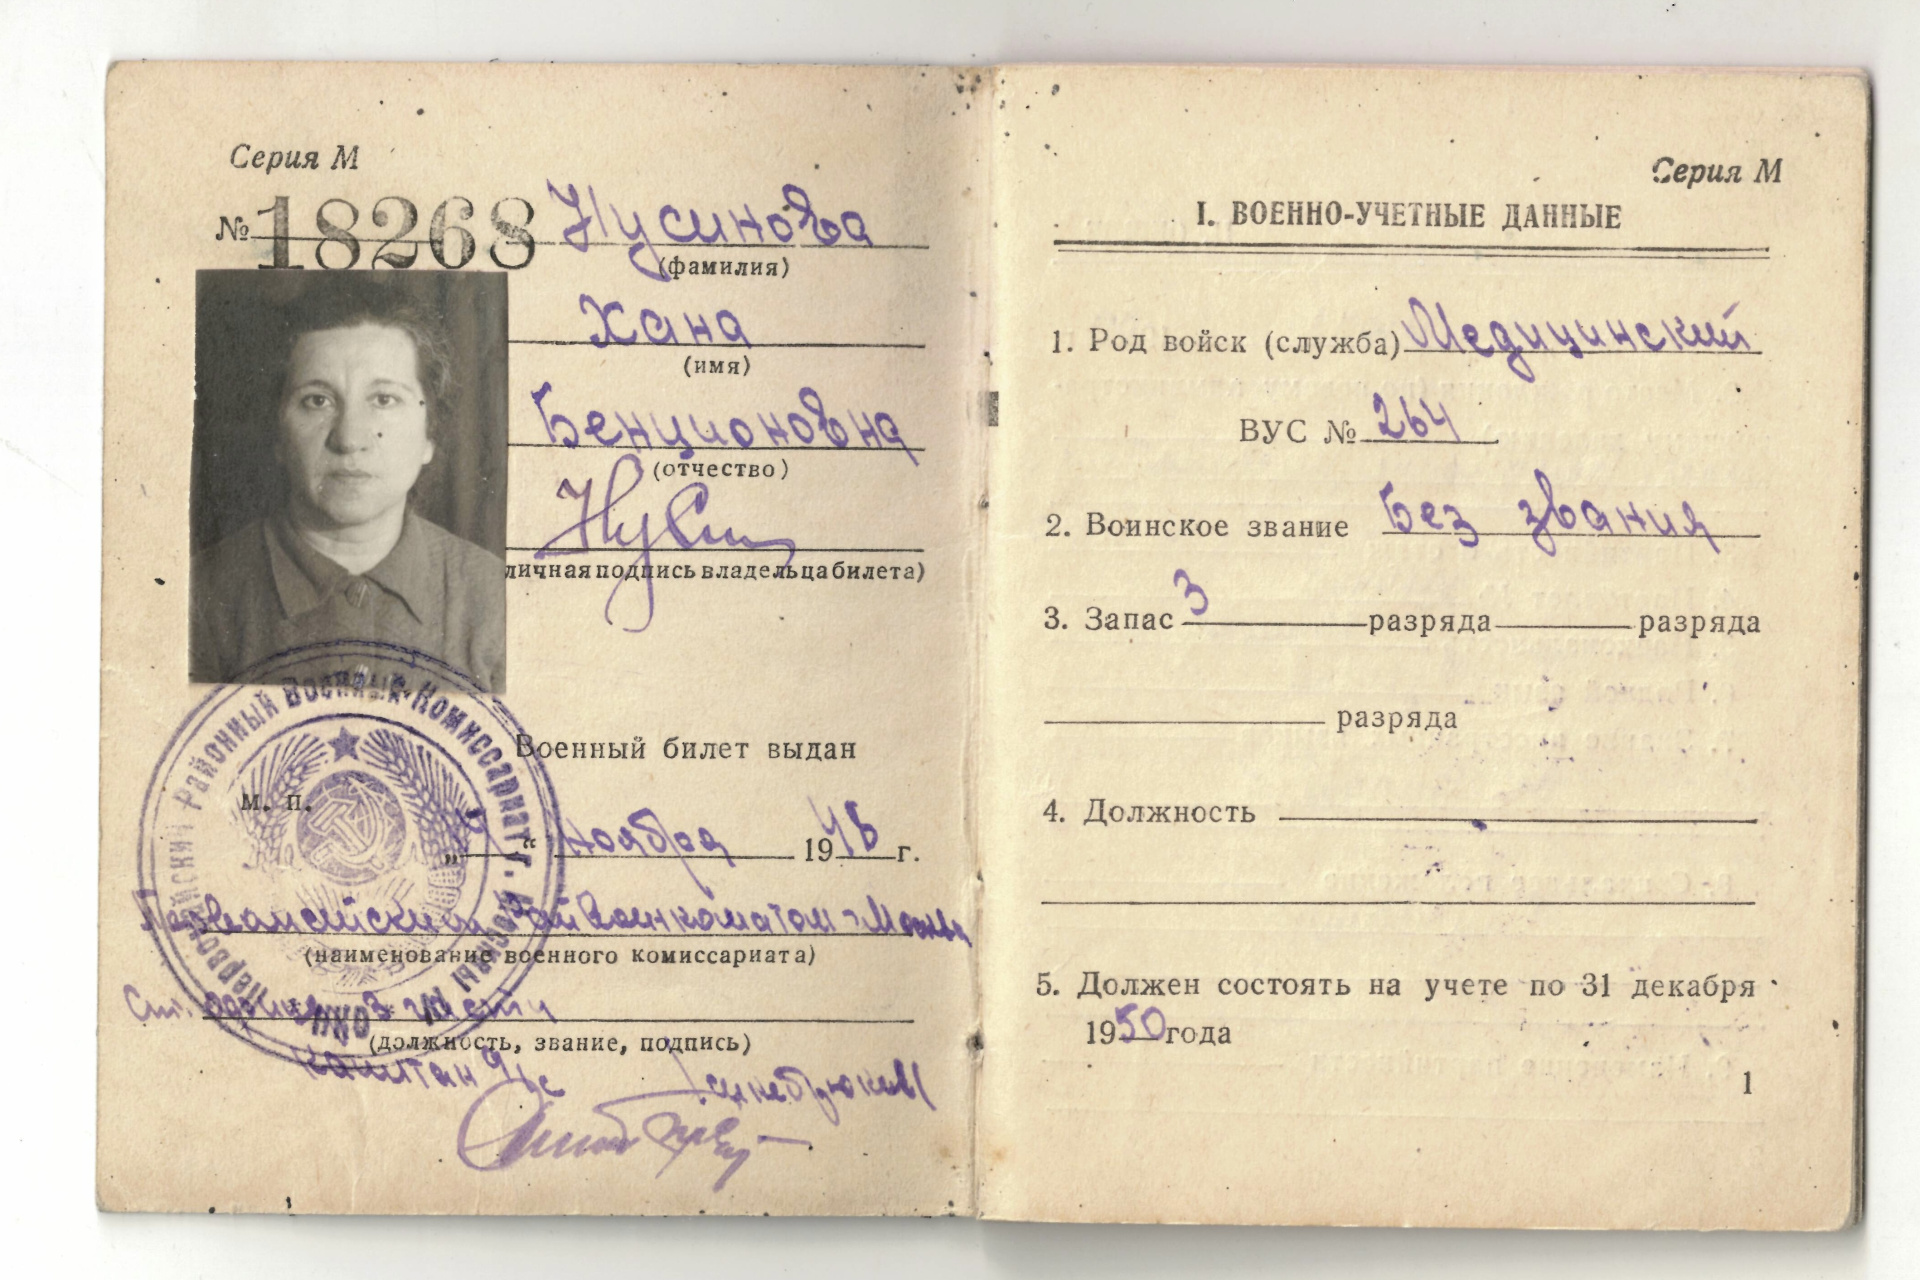 Серия М
№ 18268 Нусинова
(фамилия)
Хана
(имя)
Бенционовна
(отчество)
личная подпись владельца билета)
Военный билет выдан
м. п.
" ноября 1948 г.
Райвоенкоматом г. Москва
(наименование военного комиссариата)
Ст. 3 части
(должность, звание, подпись)
капитан
Первомайский Районный Военный Комиссариат г. Москвы
Серия М
I. ВОЕННО-УЧЕТНЫЕ ДАННЫЕ
1. Род войск (служба) Медицинский
ВУС № 264
2. Воинское звание Без звания
3. Запас 3 разряда разряда
разряда
4. Должность
5. Должен состоять на учете по 31 декабря
1950 года
1